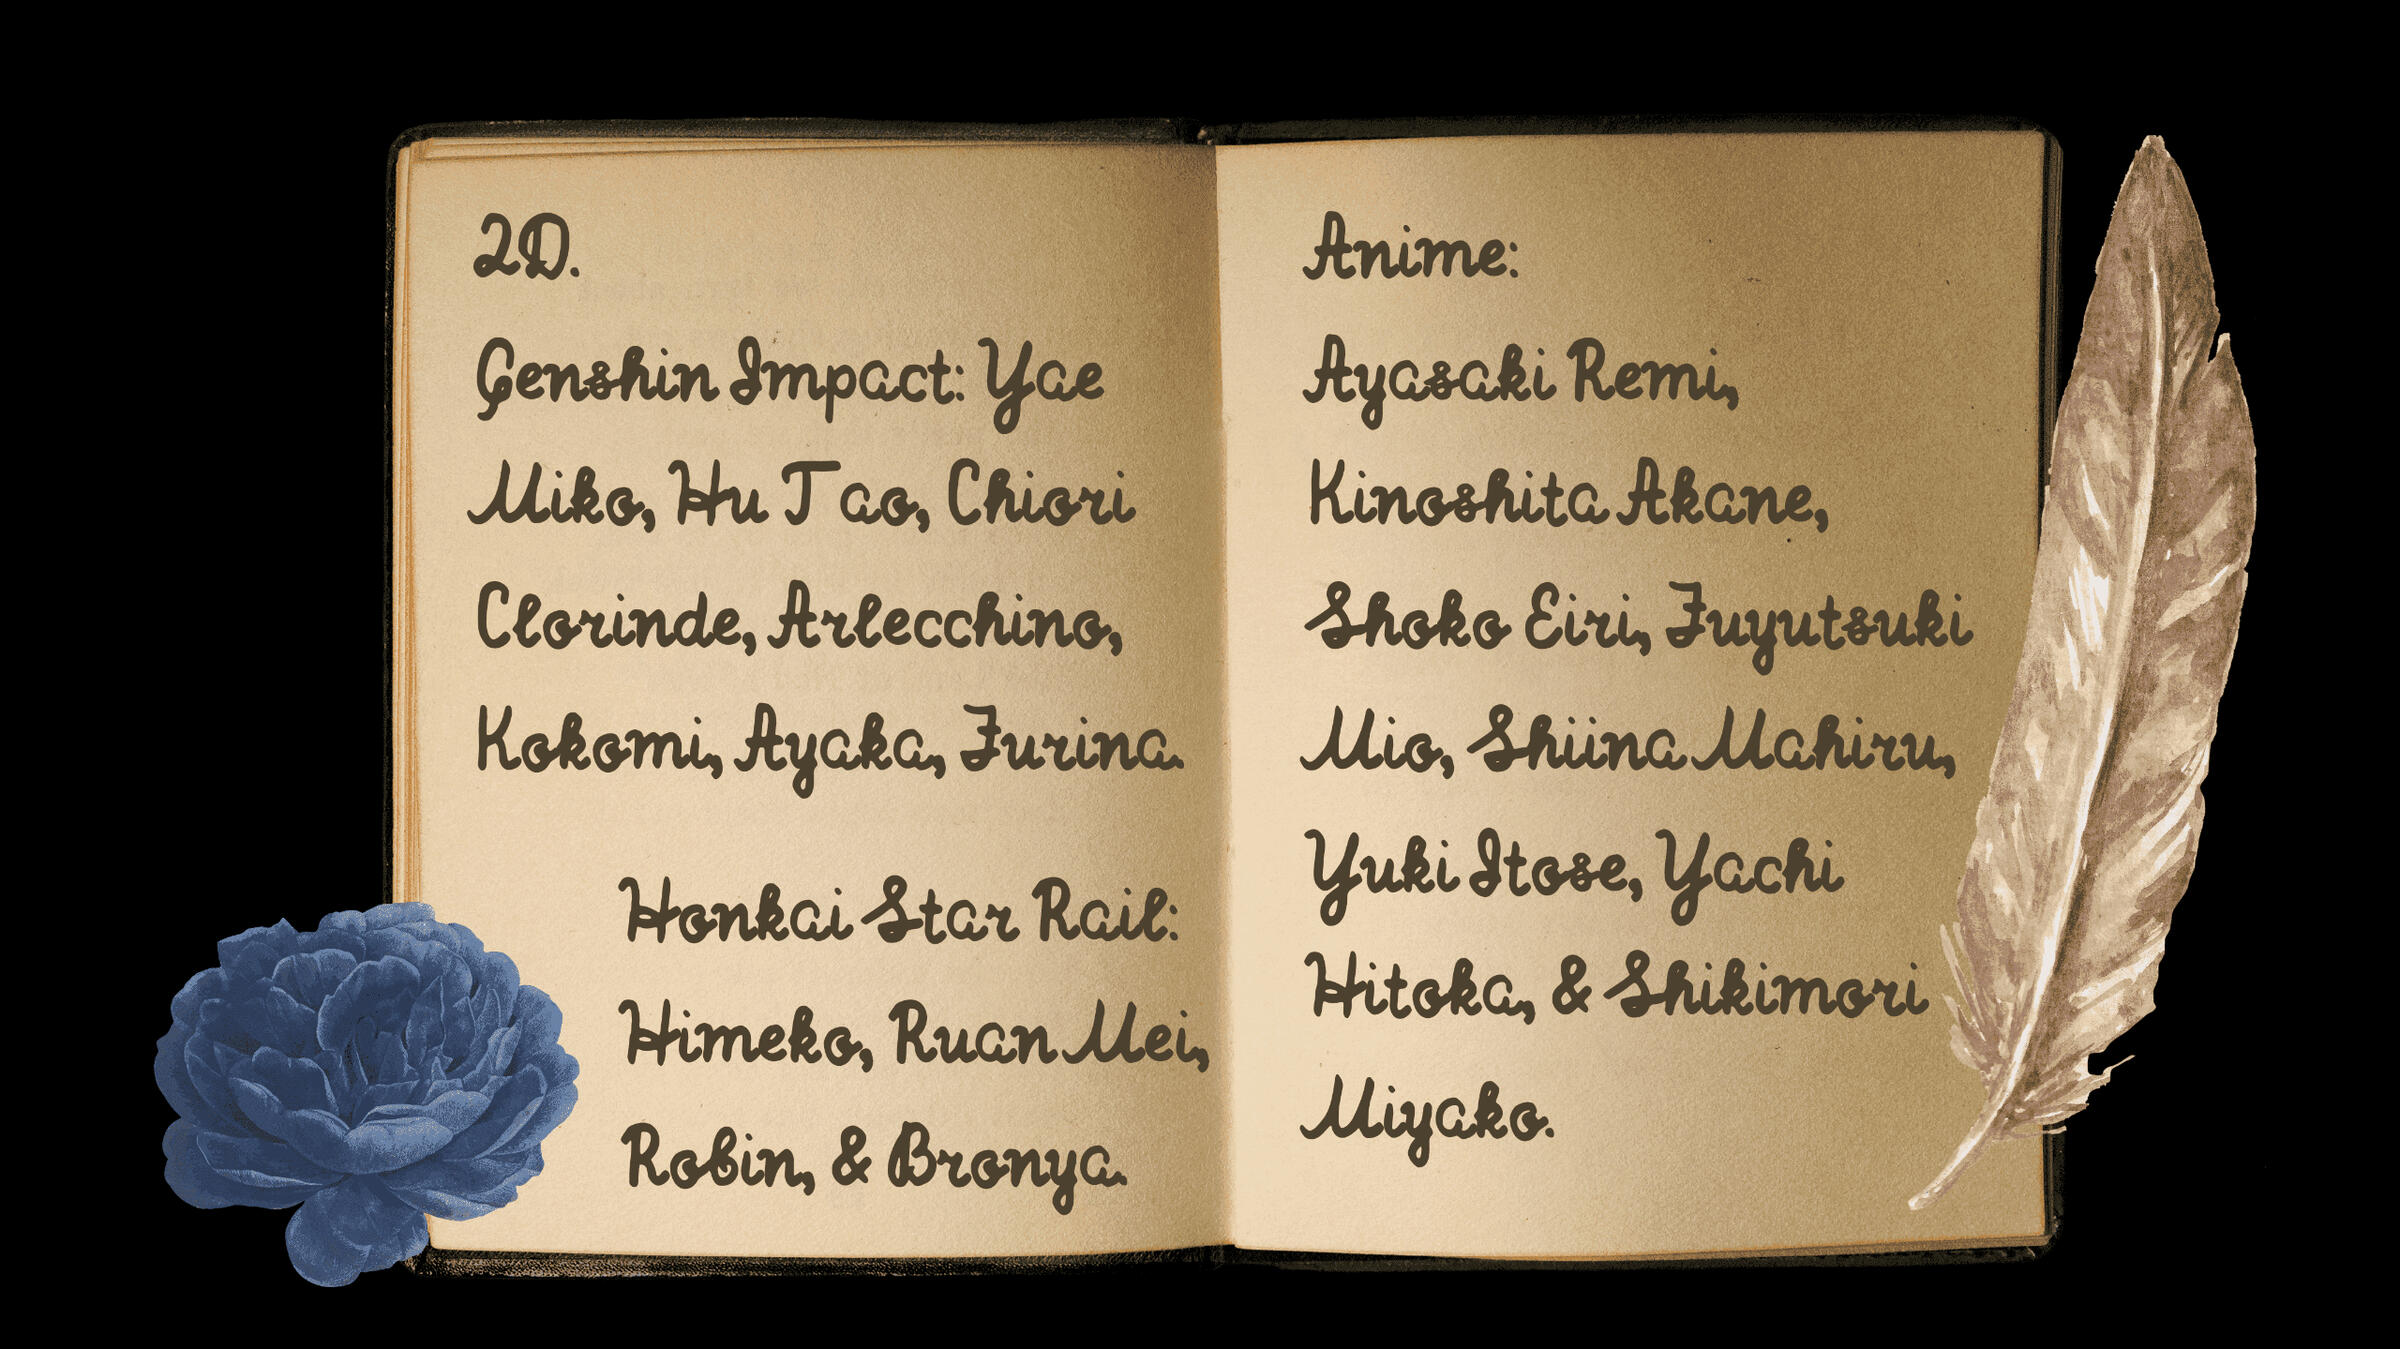 2D.
Genshin Impact: Yae
Miko, Hu Tao, Chiori
Clorinde, Arlecchino,
Kokomi, Ayaka, Furina.
Honkai Star Rail:
Himeko, Ruan Mei,
Robin, & Bronya.
Anime:
Ayasaki Remi,
Kinoshita Akane,
Shoko Eiri, Fuyutsuki
Mio, Shiina Mahiru,
Yuki Itose, Yachi
Hitoka, & Shikimori
Miyako.